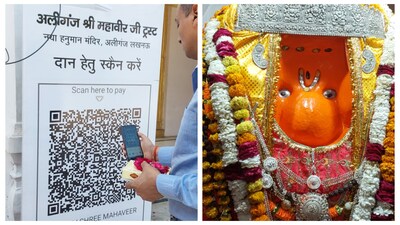 अलीगंज श्री महावीर जी ट्रस्ट
नया हनुमान मंदिर, अलीगंज लखनऊ
दान हेतु स्कैन करें
Scan here to pay
SHREE MAHAVEER